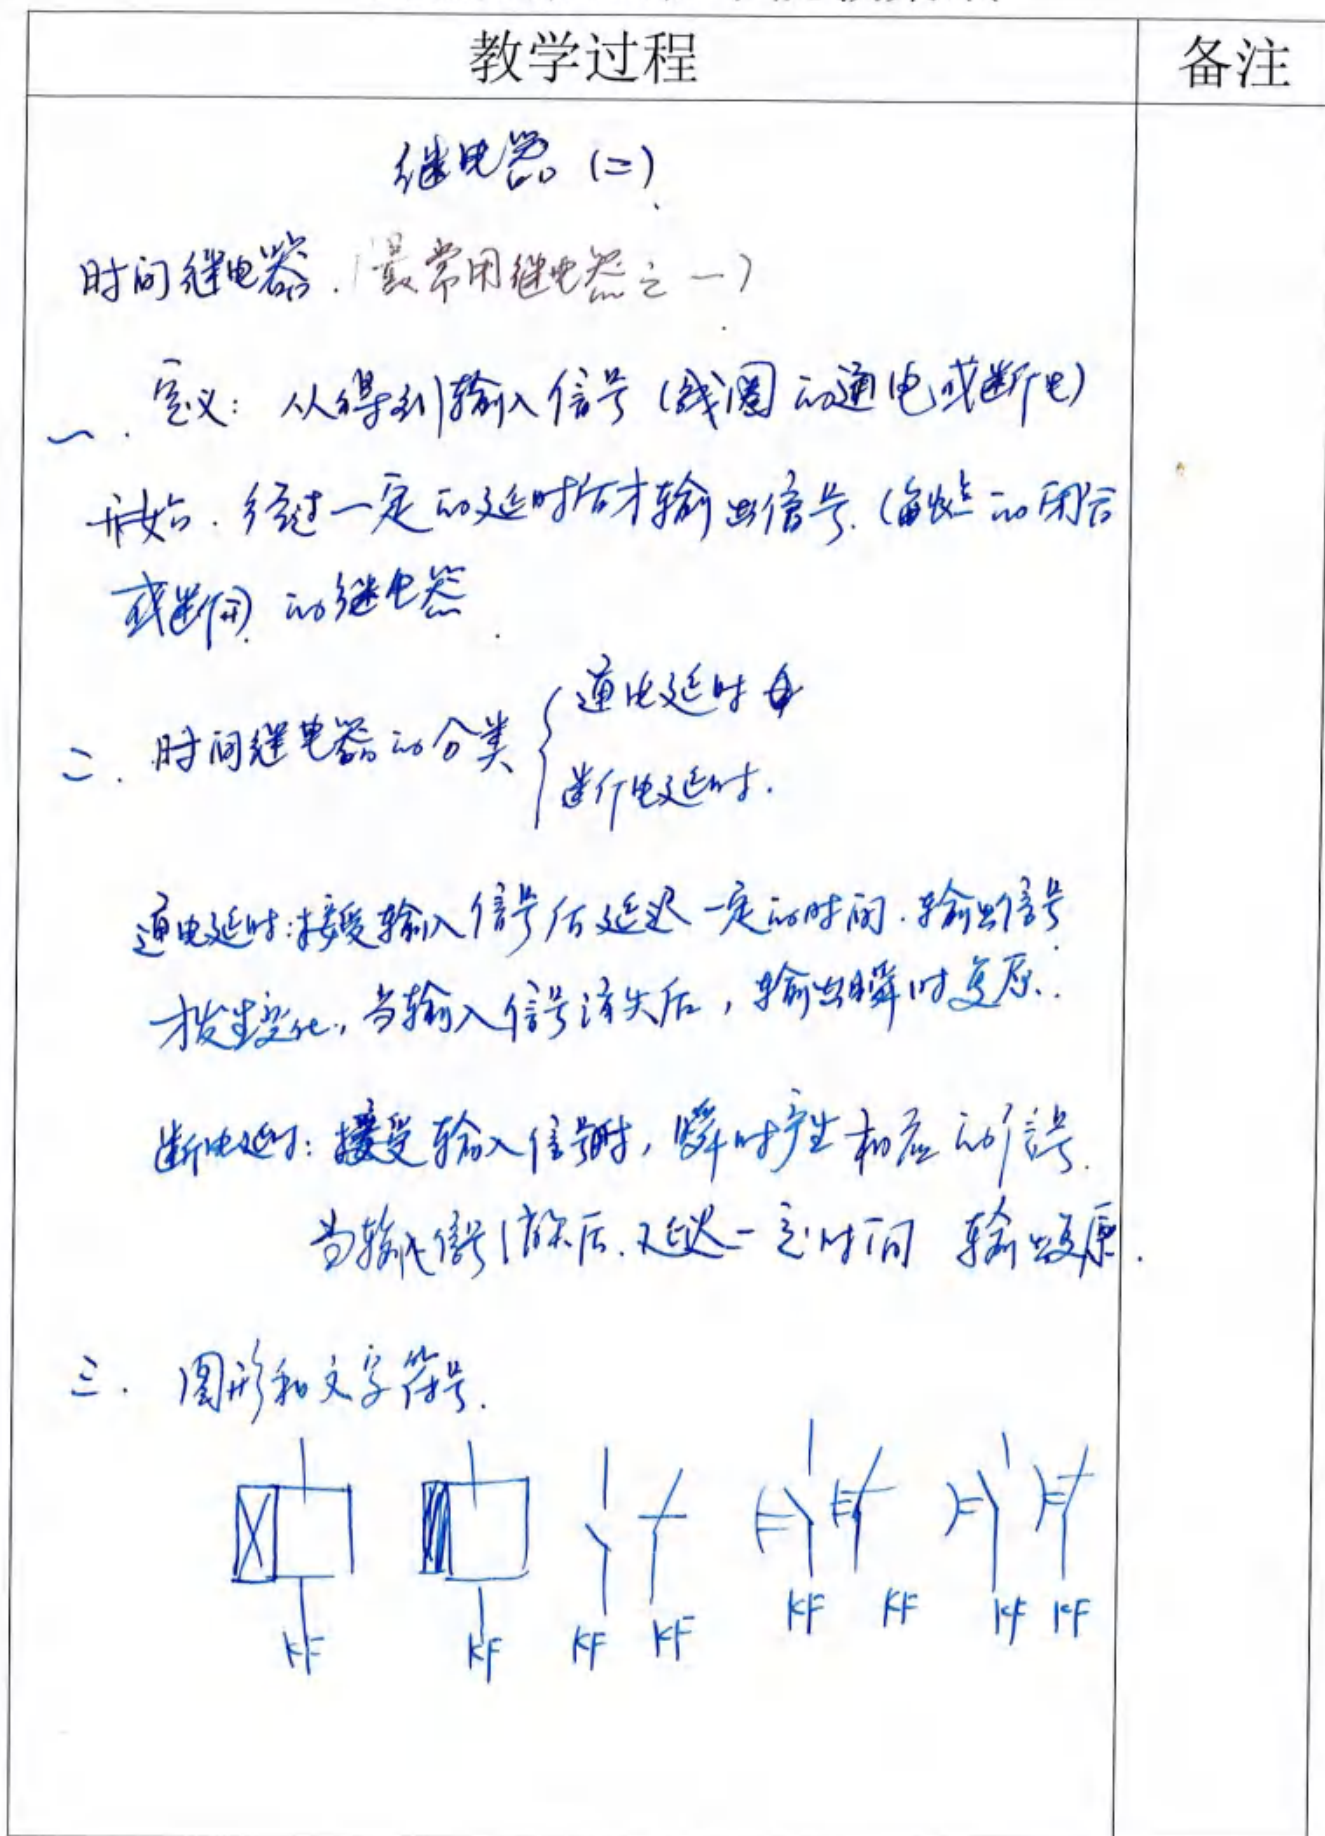 教学过程
备注
继电器(二)
时间继电器.(最常用继电器之一)
一. 定义: 从得到输入信号(线圈的通电或断电)
开始. 经过一定的延时后才输出信号.(触点的闭合
或断开)的继电器.
二. 时间继电器的分类
通电延时
断电延时.
通电延时:接受输入信号后延迟一定的时间.输出信号
才发生变化,当输入信号消失后,输出瞬时复原.
断电延时:接受输入信号时,瞬时产生相应的信号.
当输入信号消除后.延迟一定时间 输出复原.
三. 图形和文字符号.
KF KF KF KF KF KF KF KF